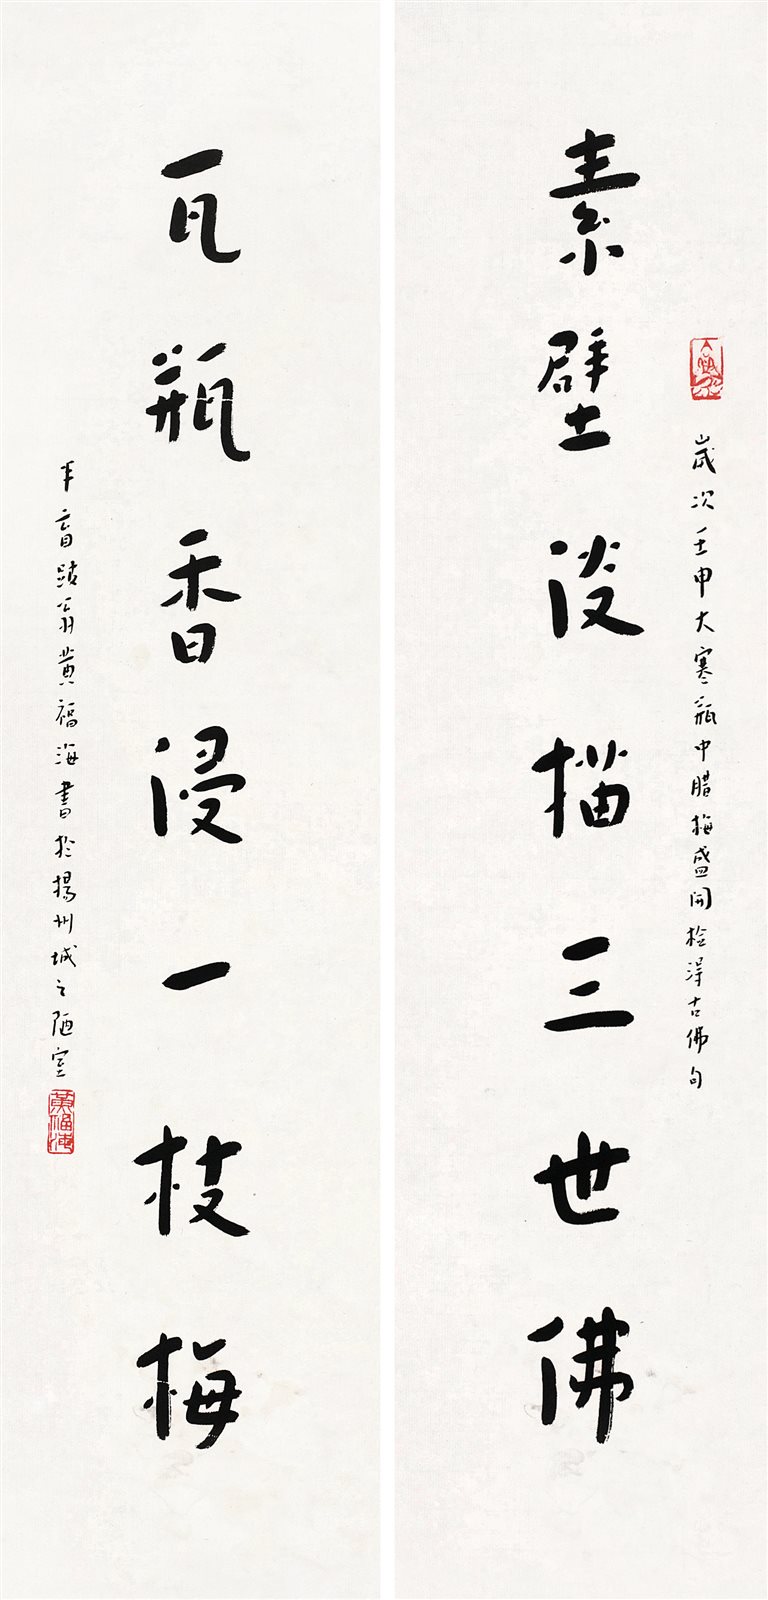 素壁淡描三世佛
歲次壬申大寒瓶中腊梅盛開檢得古佛句
瓦瓶香浸一枝梅
半盲跛翁黄福海書於揚州城之陋室
黄福海